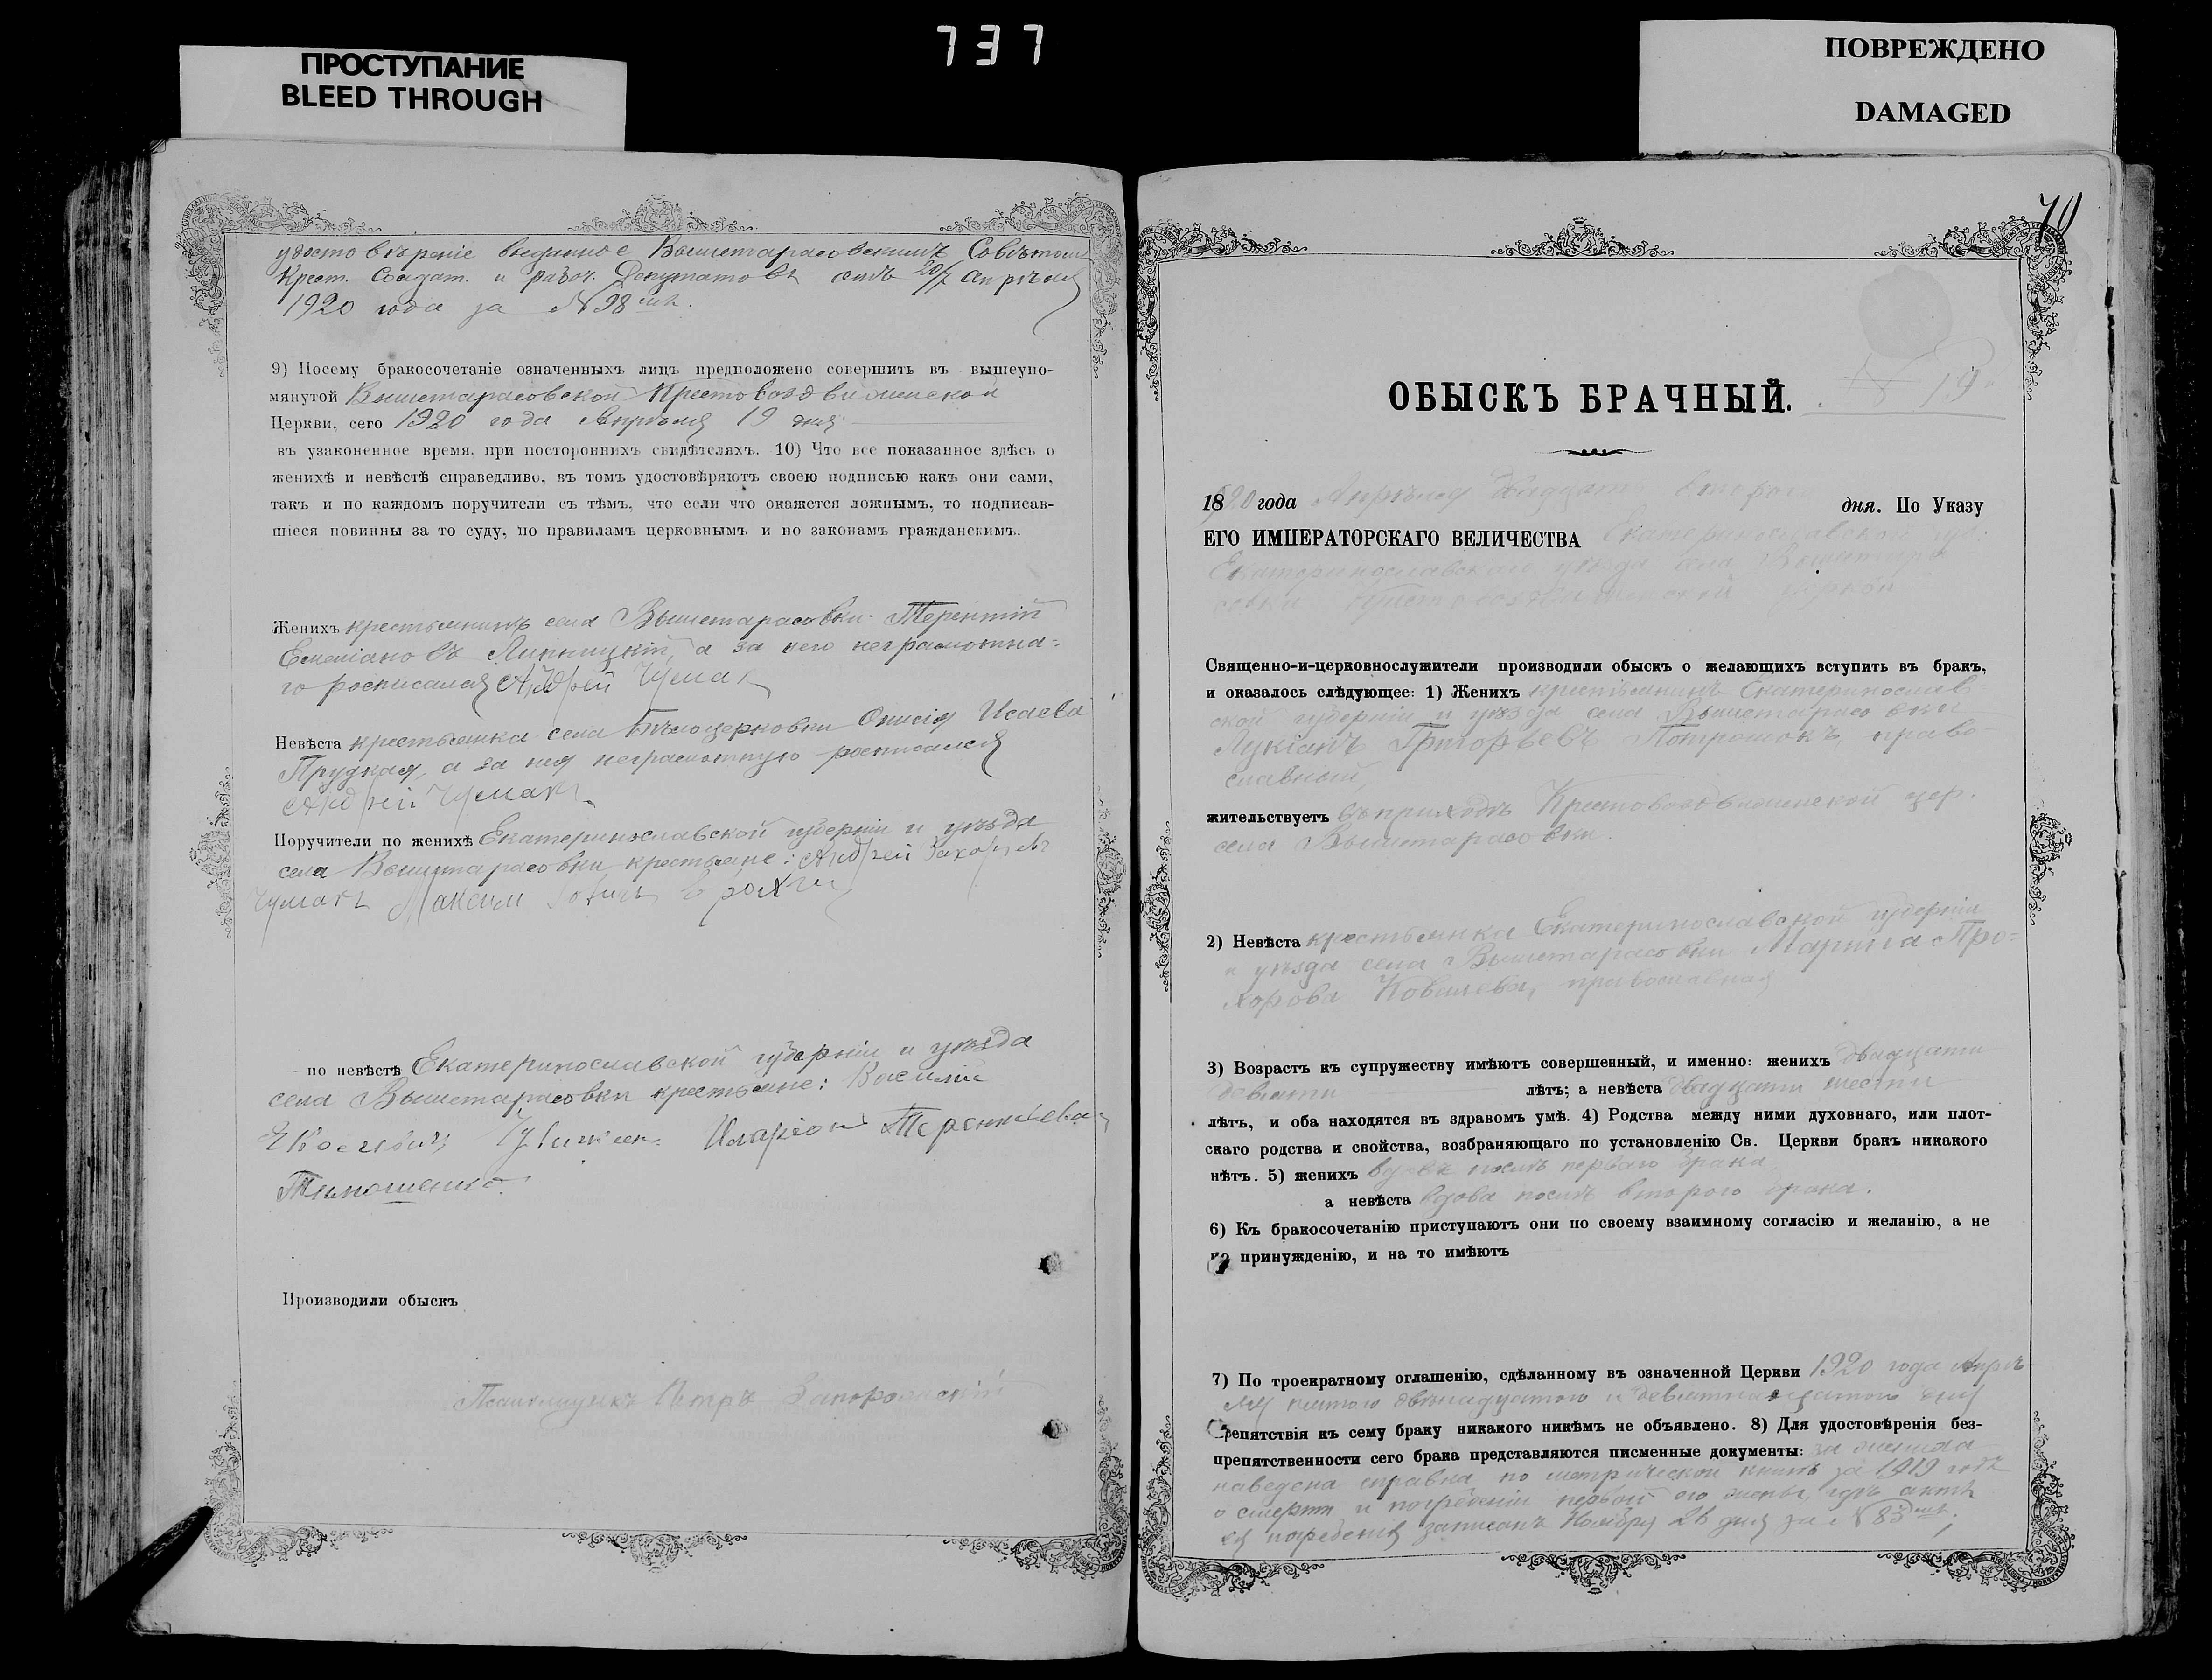 737
ПРОСТУПАНИЕ
BLEED THROUGH
ПОВРЕЖДЕНО
DAMAGED
удостовѣреніе выданное Вышетарасовскимъ Совѣтомъ
Крест. Солдат. и рабоч. Депутатовъ отъ 20/7 Апрѣля
1920 года за № 98
9) Посему бракосочетаніе означенныхъ лицъ предположено совершить въ вышеупо-
мянутой Вышетарасовской Крестовоздвиженской
Церкви, сего 1920 года Апрѣля 19 дня
въ узаконенное время, при постороннихъ свидѣтеляхъ. 10) Что все показанное здѣсь о
женихѣ и невѣстѣ справедливо, въ томъ удостовѣряютъ своею подписью какъ они сами,
такъ и по каждомъ поручители съ тѣмъ, что если что окажется ложнымъ, то подписав-
шіеся повинны за то суду, по правиламъ церковнымъ и по законамъ гражданскимъ.
Женихъ крестьянинъ села Вышетарасовки Терентій
Емеліановъ Липницкій, а за него неграмотна-
го росписался Андрей Чумак
Невѣста крестьянка села Бѣлоцерковки Онисія Исаева
Прудкая, а за нея неграмотную росписался
Андрей Чумакъ
Поручители по женихѣ Екатеринославской губерніи и уѣзда
села Вышетарасовки крестьяне: Андрей Захарьевъ
Чумакъ Максим
по невѣстѣ Екатеринославской губерніи и уѣзда
села Вышетарасовки крестьяне: Василій
Иларіонъ Терентьева
Тимошенко.
Производили обыскъ
Псаломщикъ Петръ Запорожскій
70
ОБЫСКЪ БРАЧНЫЙ. № 19
1920 года Апрѣля двадцать второго дня. По Указу
ЕГО ИМПЕРАТОРСКАГО ВЕЛИЧЕСТВА Екатеринославской губ.
Екатеринославскаго уѣзда села Вышетара-
совки Крестовоздвиженской церкви
Священно-и-церковнослужители производили обыскъ о желающихъ вступить въ бракъ,
и оказалось слѣдующее: 1) Женихъ крестьянинъ Екатеринослав-
ской губерніи и уѣзда села Вышетарасовки
Лукіанъ Григорьевъ Потрошокъ, право-
славный,
жительствуетъ въ приходѣ Крестовоздвиженской цер.
села Вышетарасовки
2) Невѣста крестьянка Екатеринославской губерніи
и уѣзда села Вышетарасовки Марина Про-
хорова Ковалева, православная
3) Возрастъ къ супружеству имѣютъ совершенный, и именно: женихъ двадцати
девяти лѣтъ; а невѣста двадцати шести
лѣтъ, и оба находятся въ здравомъ умѣ. 4) Родства между ними духовнаго, или плот-
скаго родства и свойства, возбраняющаго по установленію Св. Церкви бракъ никакого
нѣтъ. 5) женихъ вдовъ послѣ перваго брака
а невѣста вдова послѣ второго брака.
6) Къ бракосочетанію приступаютъ они по своему взаимному согласію и желанію, а не
по принужденію, и на то имѣютъ
7) По троекратному оглашенію, сдѣланному въ означенной Церкви 1920 года Апрѣ
ля пятого двѣнадцатого и девятнадцатого дня
репятствія къ сему браку никакого никѣмъ не объявлено. 8) Для удостовѣренія без-
препятственности сего брака представляются писменные документы: за жениха
наведена справка по метрической книгѣ за 1919 годъ
о смерти и погребеніи первой его жены, гдѣ актъ
ея погребенія записанъ Ноября 26 дня за № 83